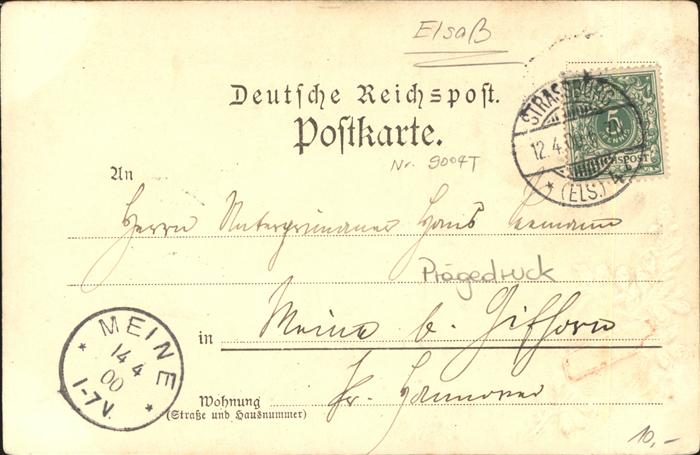 Elsaß
Deutsche Reichspost.
Postkarte.
Nr. 9004T
STRASSBURG
12.4.
(ELS.)
5
REICHSPOST
An
Herrn Unterprimaner Hans
Prägedruck
in Meine b. Gifhorn
MEINE
14 4
00
1-7V.
Wohnung
(Straße und Hausnummer)
Pr. Hannover
10,-